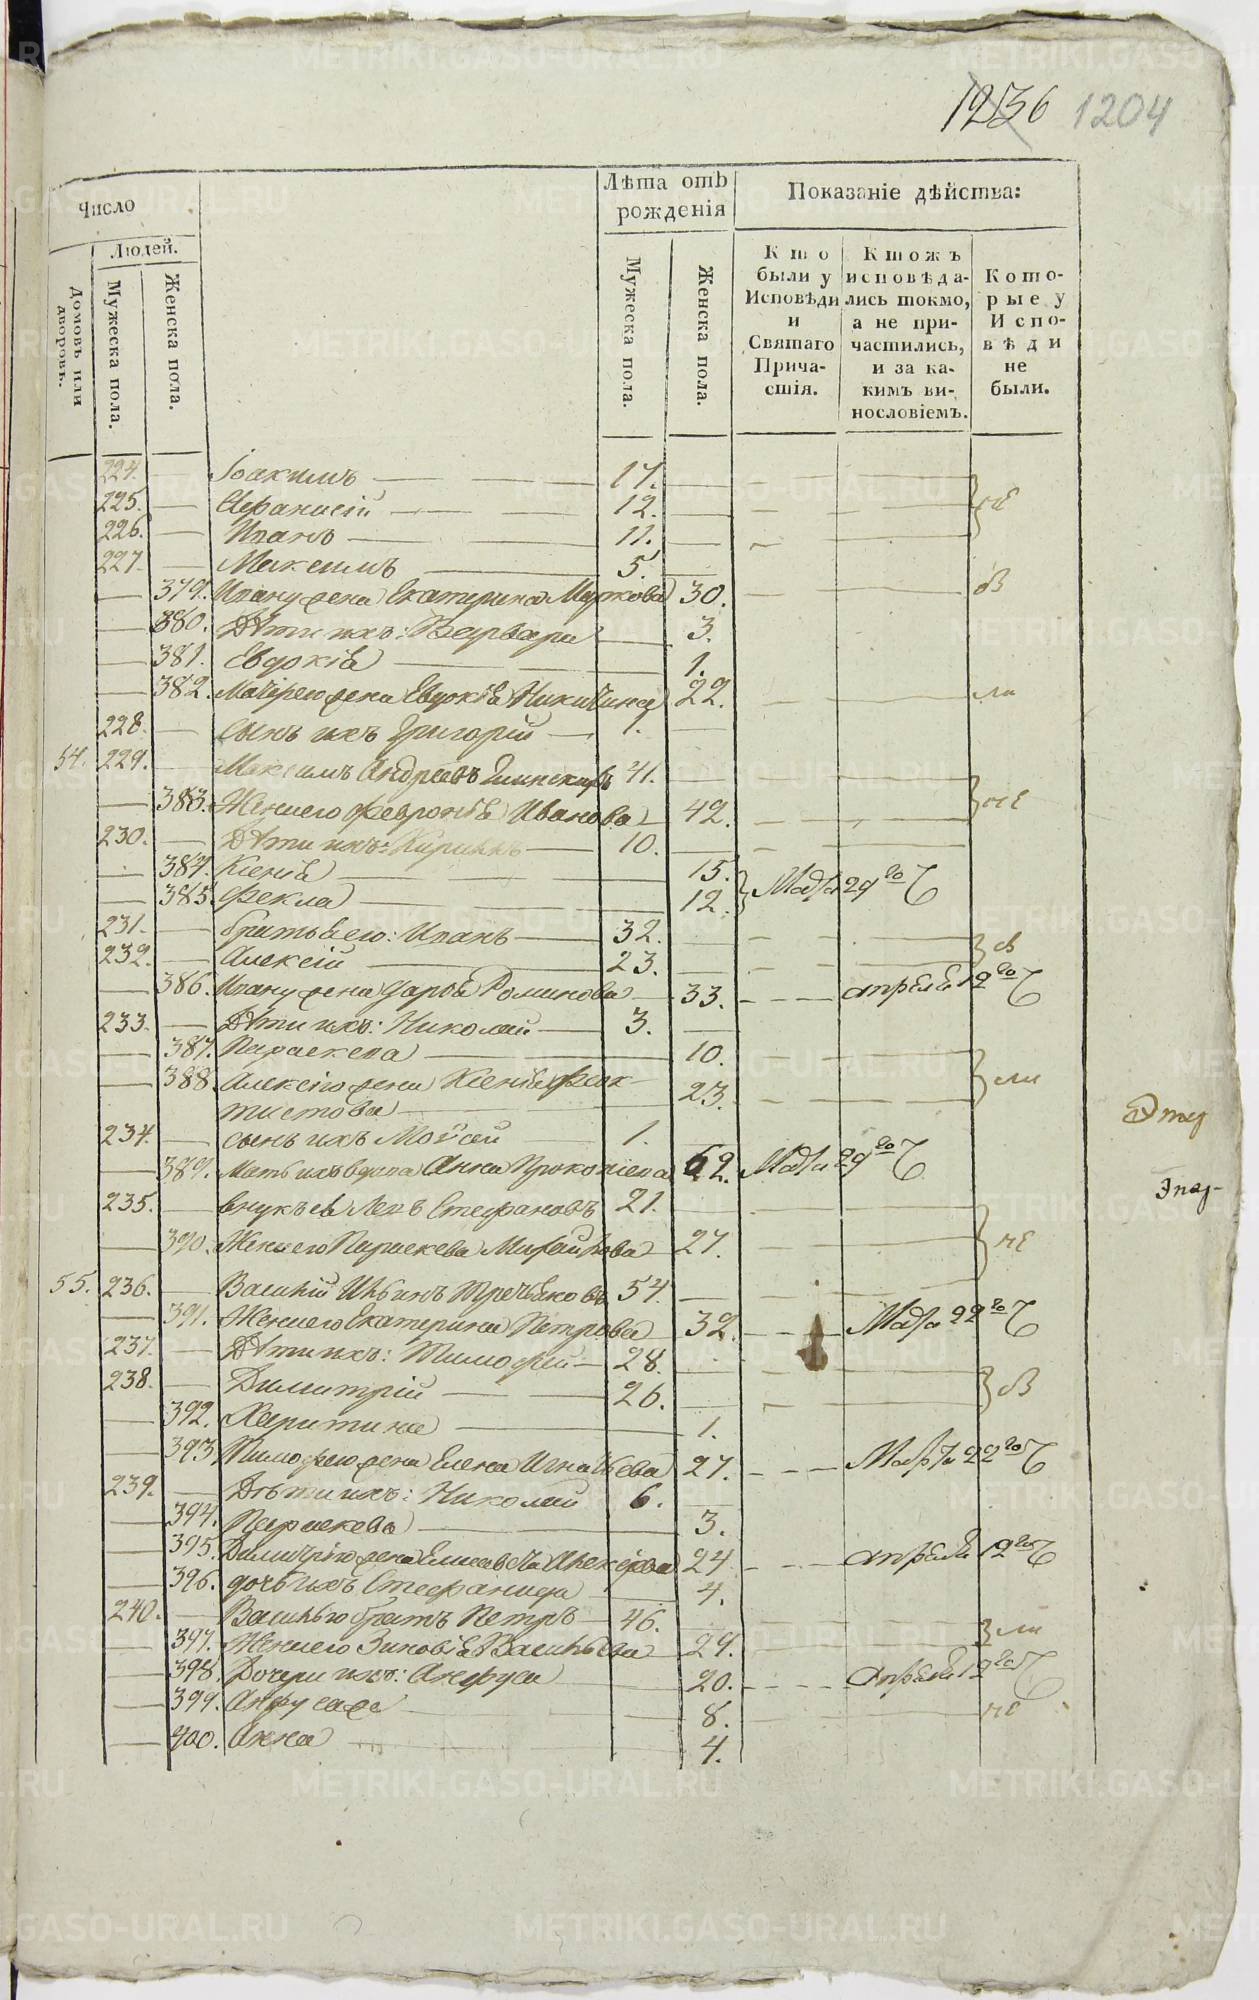 1236 1204
Число
Людей.
Домовъ или дворовъ.
Мужеска пола.
Женска пола.
Лѣта отъ рожденія
Мужеска пола.
Женска пола.
Показаніе дѣйства:
Кто были у Исповѣди и Святаго Причастія.
Ктожъ исповѣдались токмо, а не причастились, и за какимъ винословіемъ.
Которые у Исповѣди не были.
224. Іоакимъ 17.
225. Афанасій 12. не
226. Иванъ 11.
227. Максимъ 5.
379. Ивану жена Екатерина 30.
380. Дѣти ихъ: Варвара 3.
381. Евдокія 1.
382. жена Евдокія Никитина 22. ли
228. сынъ ихъ Григорій 1.
54. 229. Максимъ Андреевъ 41.
383. Жена его Февронія Иванова 42. не
230. Дѣти ихъ: 10.
384. Ксенія 15. Марта 29го
385. Фекла 12.
231. братья его: Иванъ 32.
232. Алексій 23.
386. Ивану жена Дарья Романова 33. апреля 12го
233. Дѣти ихъ: Николай 3.
387. Параскева 10.
388. Алексію жена Ксенія Феок-
тистова 23. ли
234. сынъ ихъ Мойсей 1.
389. Мать ихъ вдова Анна Прокопіева 62. Марта 29го
235. внукъ ея Левъ Стефановъ 21.
390. Жена его Параскева Михайлова 27. не
55. 236. Василій Ильинъ Третьяковъ 54.
391. Жена его Екатерина Петрова 32. Марта 22го
237. Дѣти ихъ: Тимофей 28.
238. Димитрій 26.
392. Харитина 1.
393. Тимофею жена Елена Игнатьева 27. Марта 22го
239. Дѣти ихъ: Николай 6.
394. Параскева 3.
395. Димитрію жена Елисавета 24. апреля 12го
396. дочь ихъ Стефанида 4.
240. Василью братъ Петръ 46.
397. Жена его Зиновія Васильева 29. ли
398. Дочери ихъ: Анфуса 20. апреля 12го
399. 8. не
400. Анна 4.
METRIKI.GASO-URAL.RU